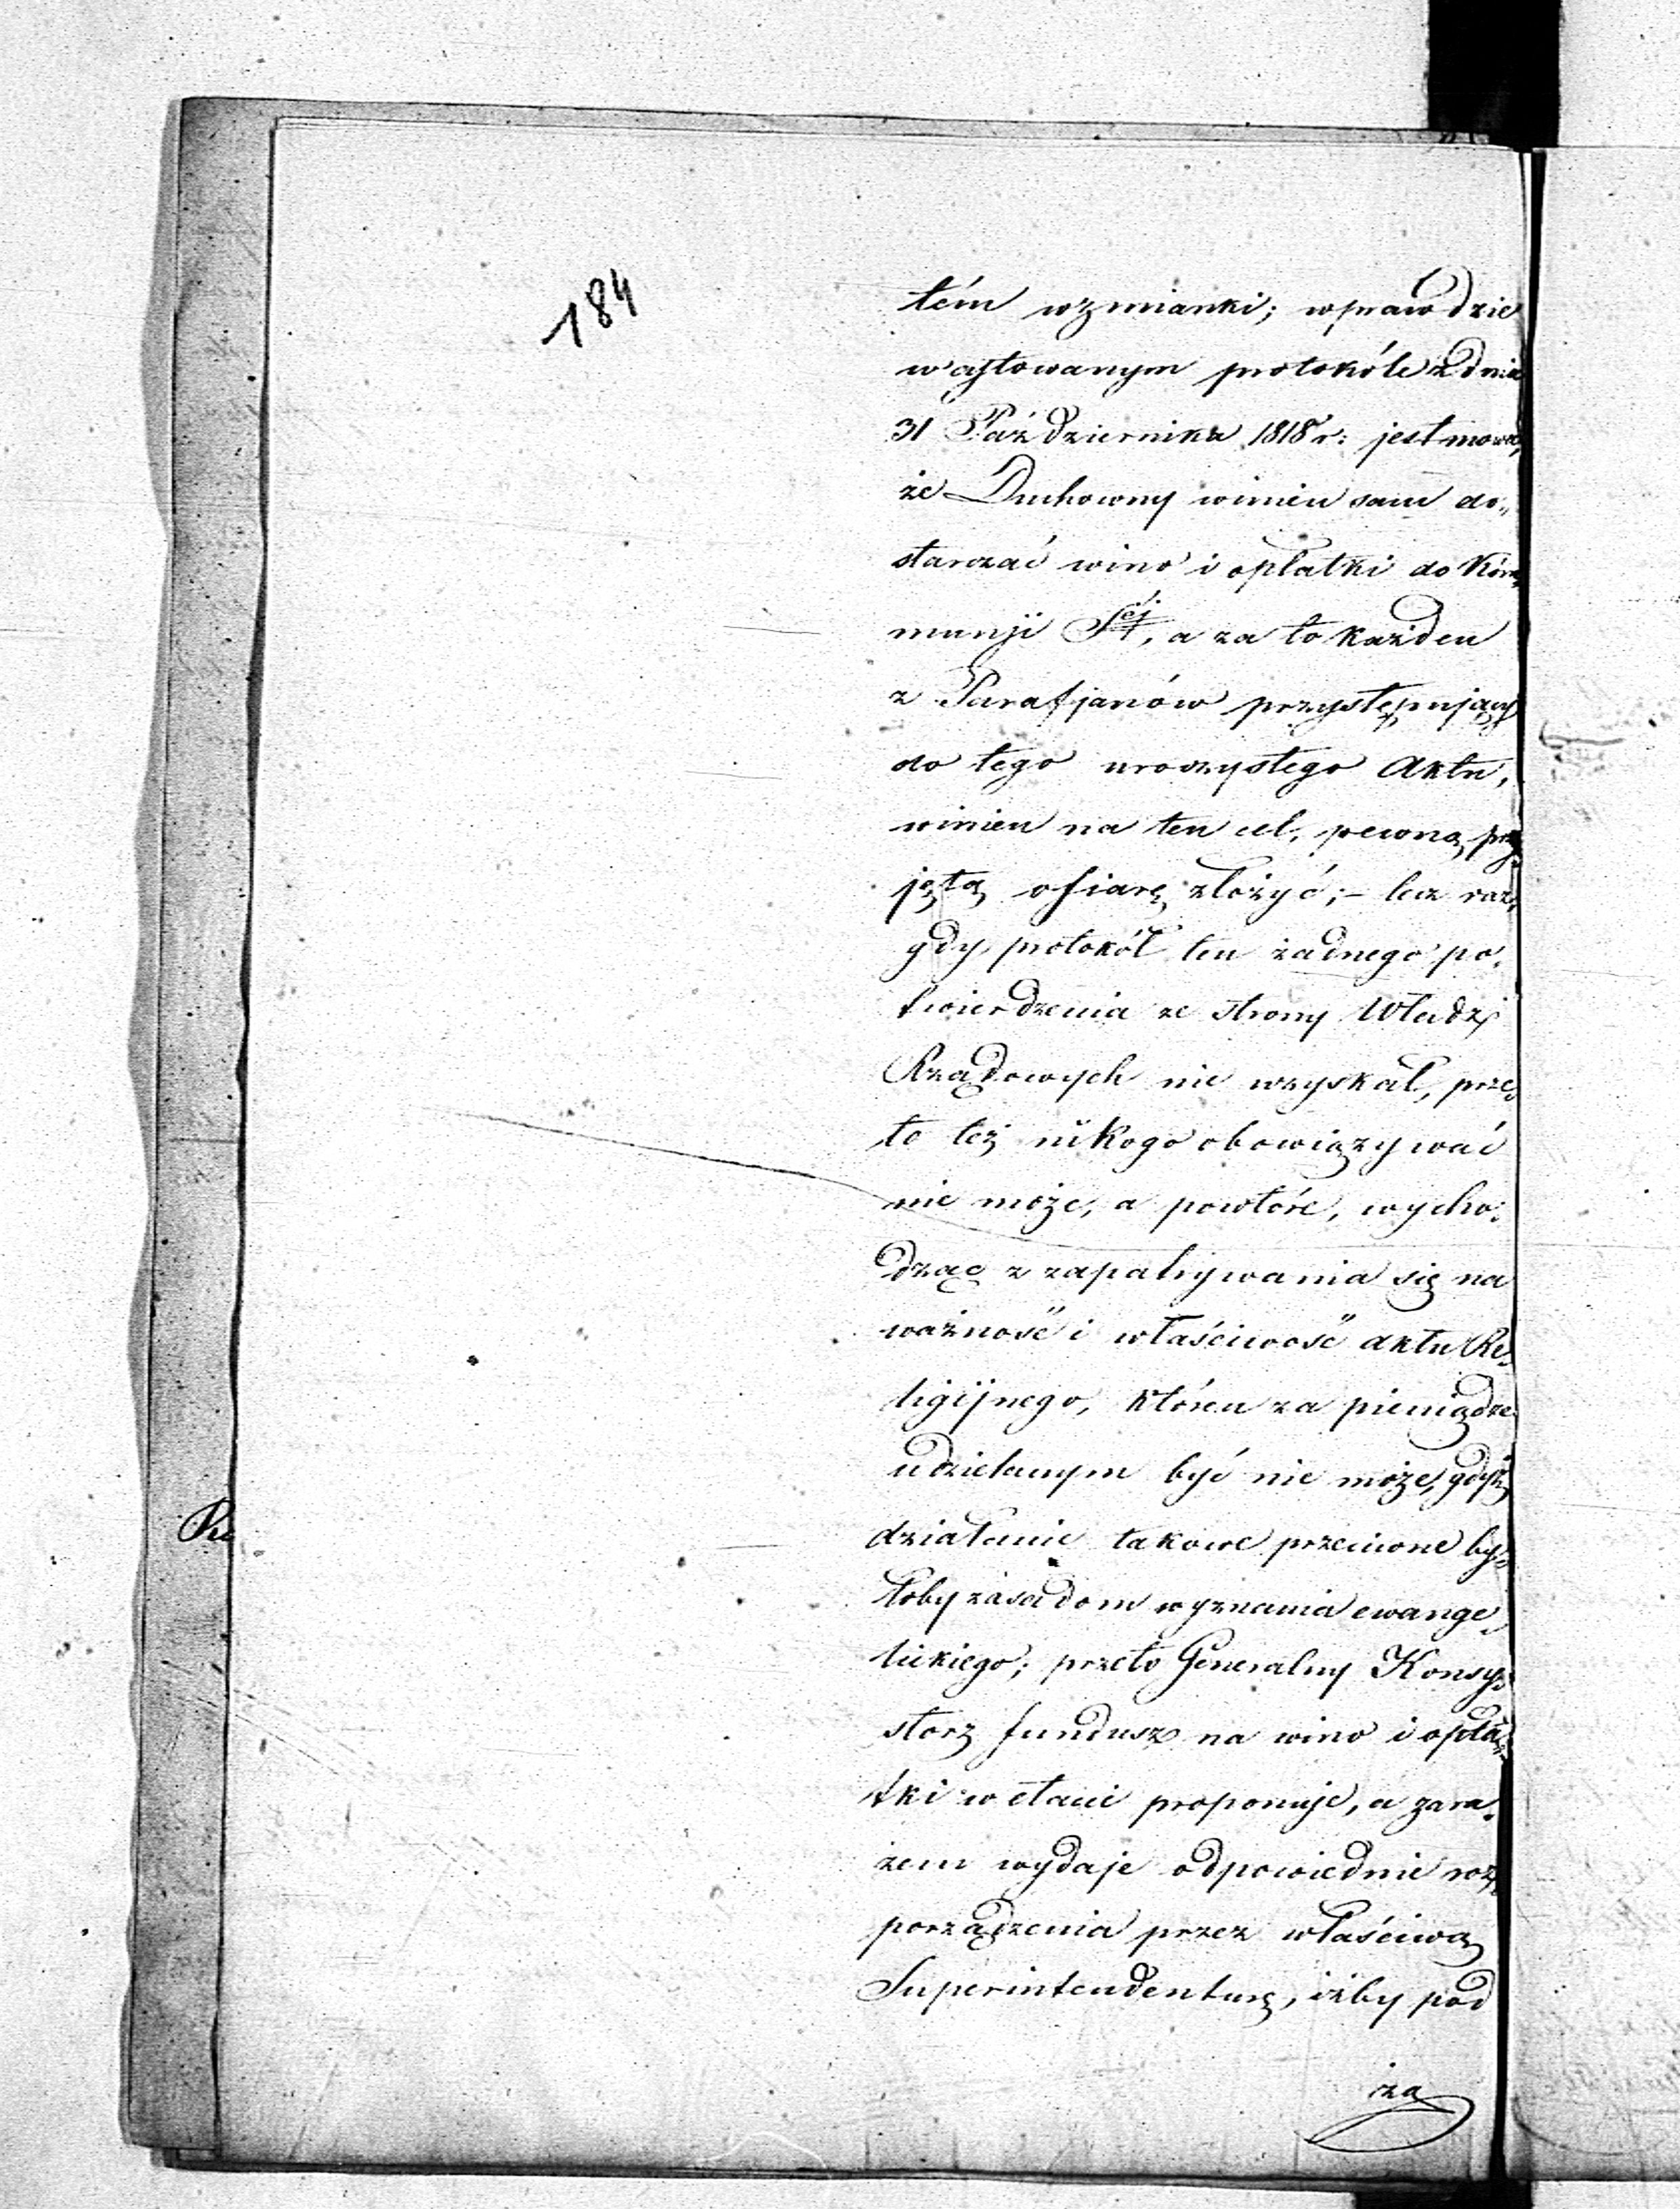 184
tém wzmianki; wprawdzie
w cytowanym protokóle z dnia
31 Października 1818 r: jest mowa,
że Duchowny winien sam do„
starczać wino i opłatki do Kom„
munji Stéj, a za to każden
z Parafjanów przystępujący
do tego uroczystego Aktu,
winien na ten cel, pewną przy„
jętą ofiarę złożyć; – lecz raz,
gdy protokół ten żadnego po„
twierdzenia ze strony Władz
Rządowych nie uzyskał, prze„
to też nikogo obowiązywać
nie może, a powtóre, wycho„
dząc z zapatrywania się na
ważność i właściwość aktu Re„
ligijnego, któren za pieniądze
udzielanym być nie może, gdyż
działanie takowe przeciwne by„
łoby zasadom wyznania ewange„
lickiego; przeto Generalny Konsy„
storz fundusz na wino i opła„
tki w etacie proponuje, a zara„
zem wydaje odpowiednie roz„
porządzenia przez właściwą
Superintendenturę, iżby pod
żą